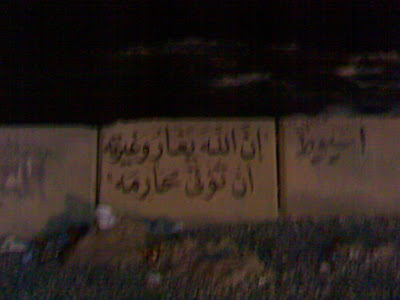 اسيوط
إنّ اللّهَ يَغَار وَغيرته
ان تؤتى محارمه